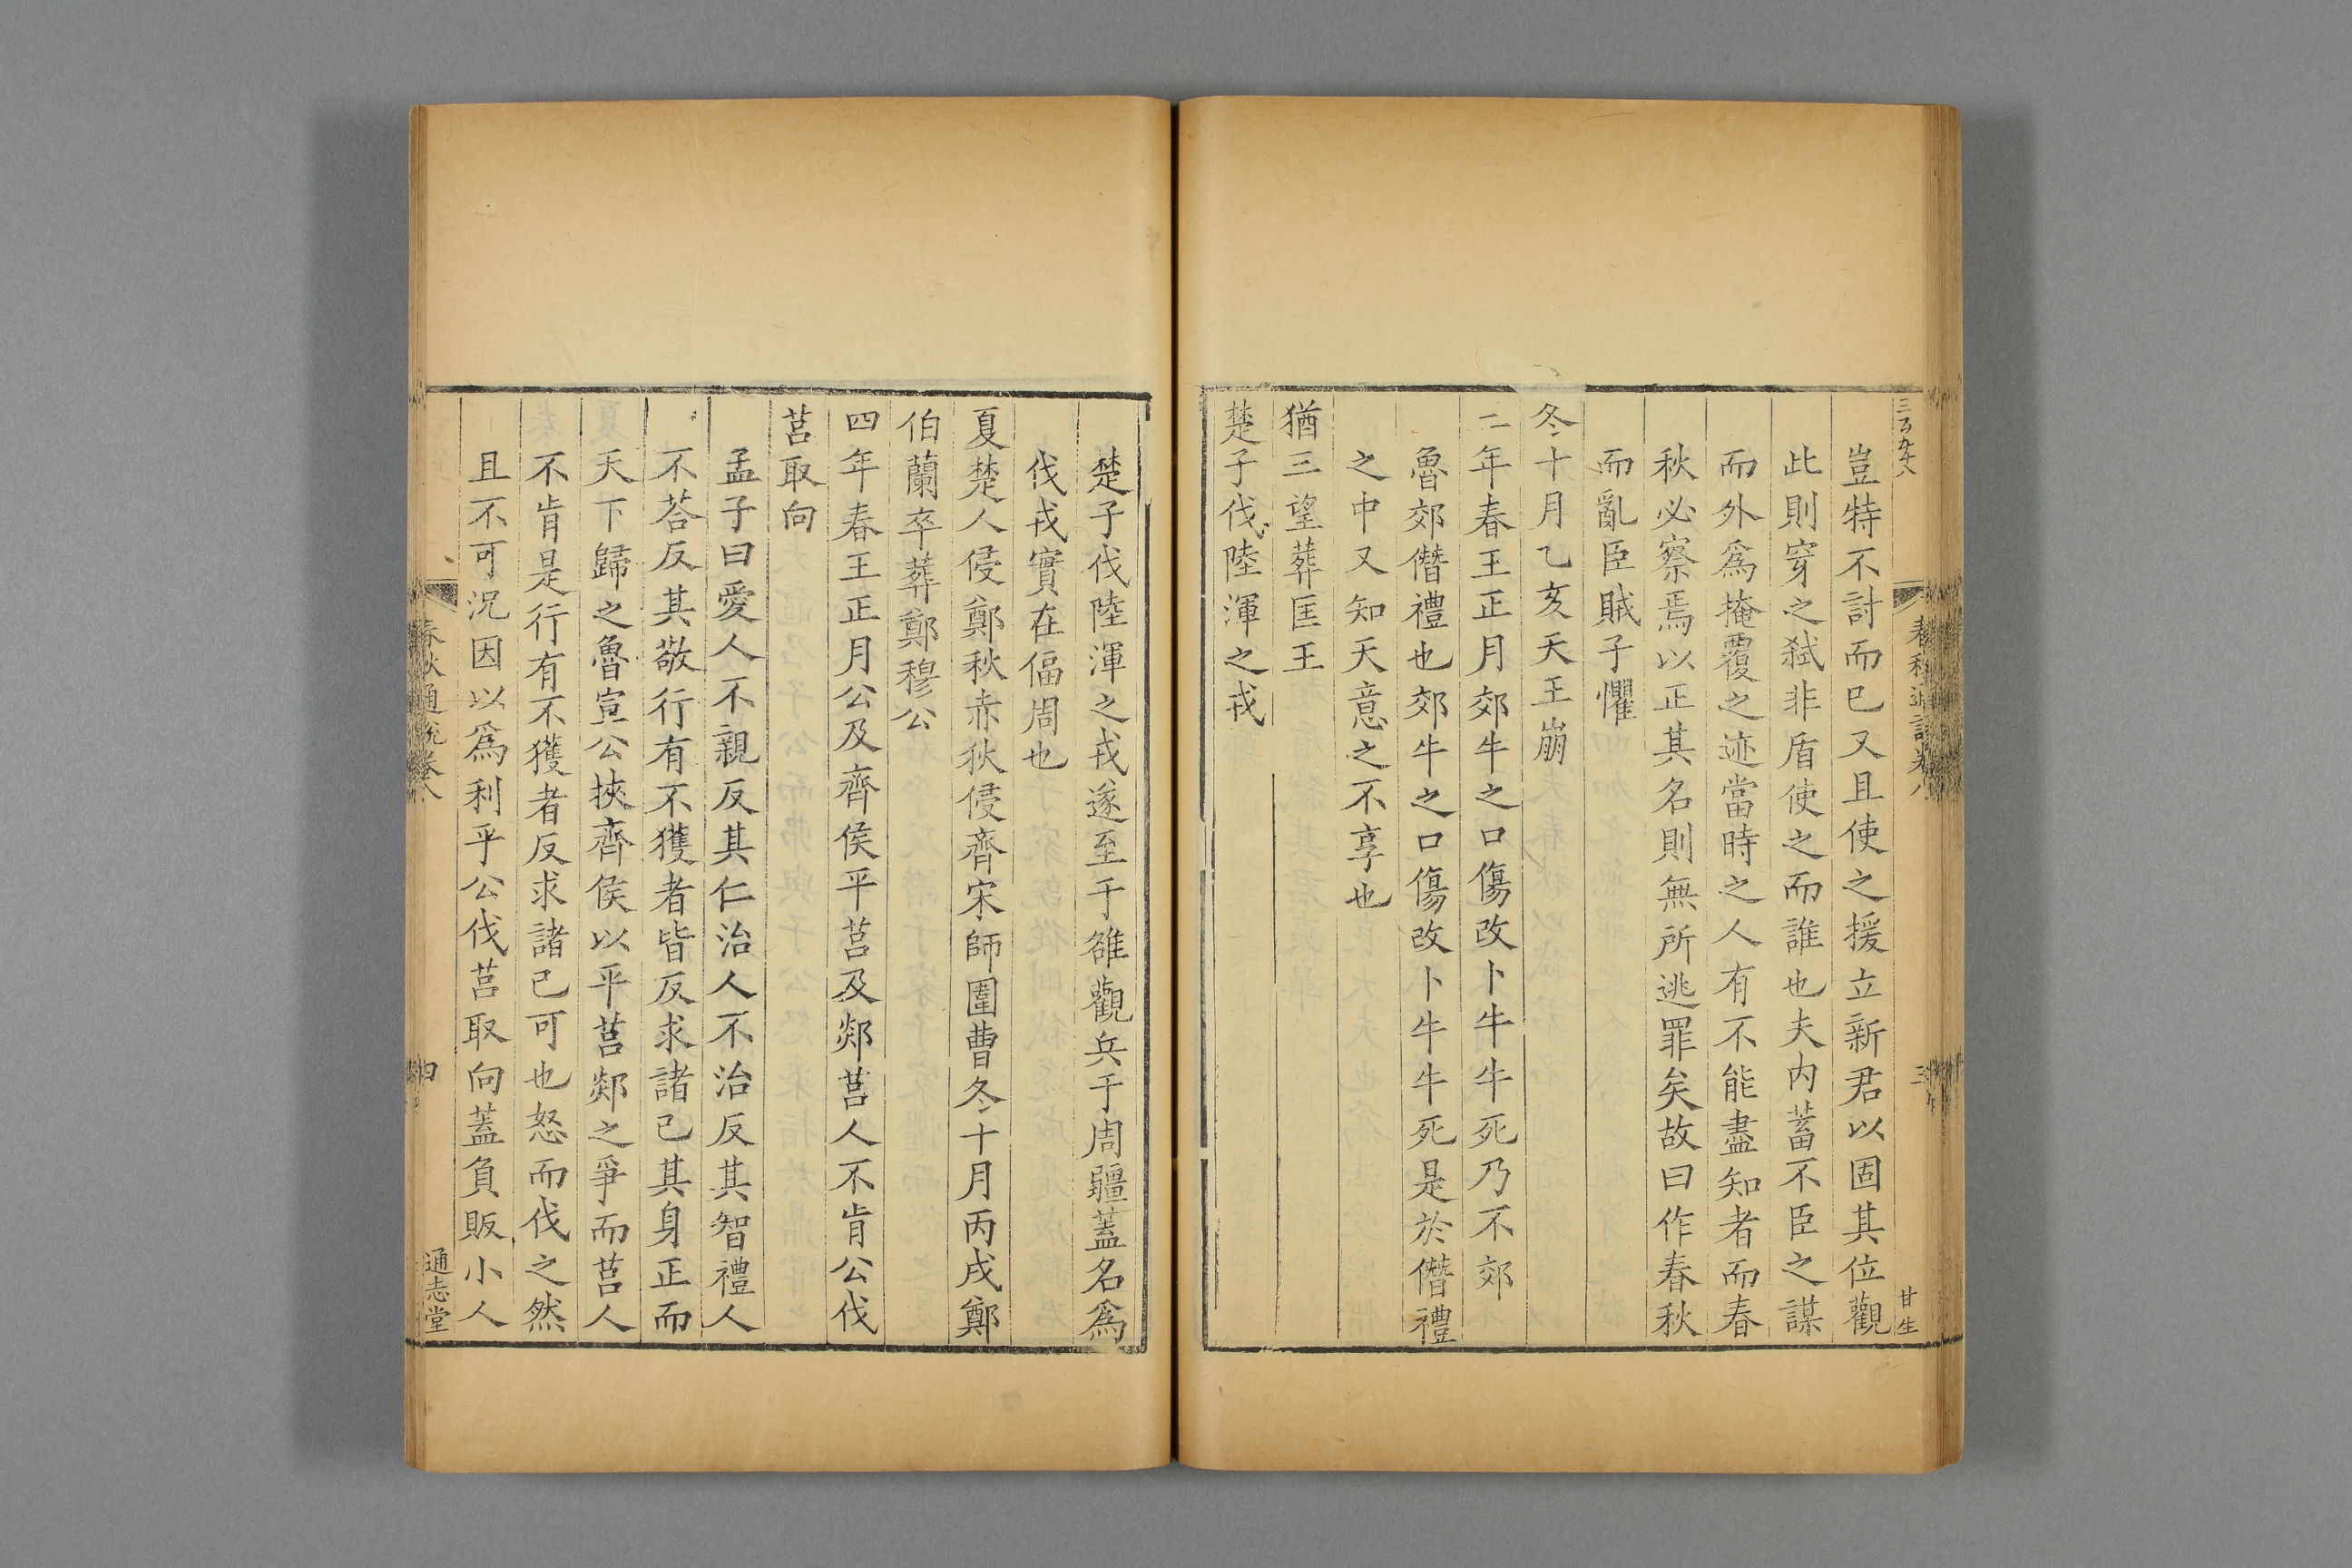 三百九十八
春秋通說卷八
三
甘生
豈特不討而已又且使之援立新君以固其位觀
此則穿之弑非盾使之而誰也夫内蓄不臣之謀
而外爲掩覆之迹當時之人有不能盡知者而春
秋必察焉以正其名則無所逃罪矣故曰作春秋
而亂臣賊子懼
冬十月乙亥天王崩
二年春王正月郊牛之口傷改卜牛牛死乃不郊
魯郊僭禮也郊牛之口傷改卜牛牛死是於僭禮
之中又知天意之不享也
猶三望葬匡王
楚子伐陸渾之戎
楚子伐陸渾之戎遂至于雒觀兵于周疆蓋名爲
伐戎實在偪周也
夏楚人侵鄭秋赤狄侵齊宋師圍曹冬十月丙戌鄭
伯蘭卒葬鄭穆公
四年春王正月公及齊侯平莒及郯莒人不肯公伐
莒取向
孟子曰愛人不親反其仁治人不治反其智禮人
不荅反其敬行有不獲者皆反求諸己其身正而
天下歸之魯宣公挾齊侯以平莒郯之爭而莒人
不肯是行有不獲者反求諸己可也怒而伐之然
且不可況因以爲利乎公伐莒取向蓋負販小人
春秋通說卷八
四
通志堂